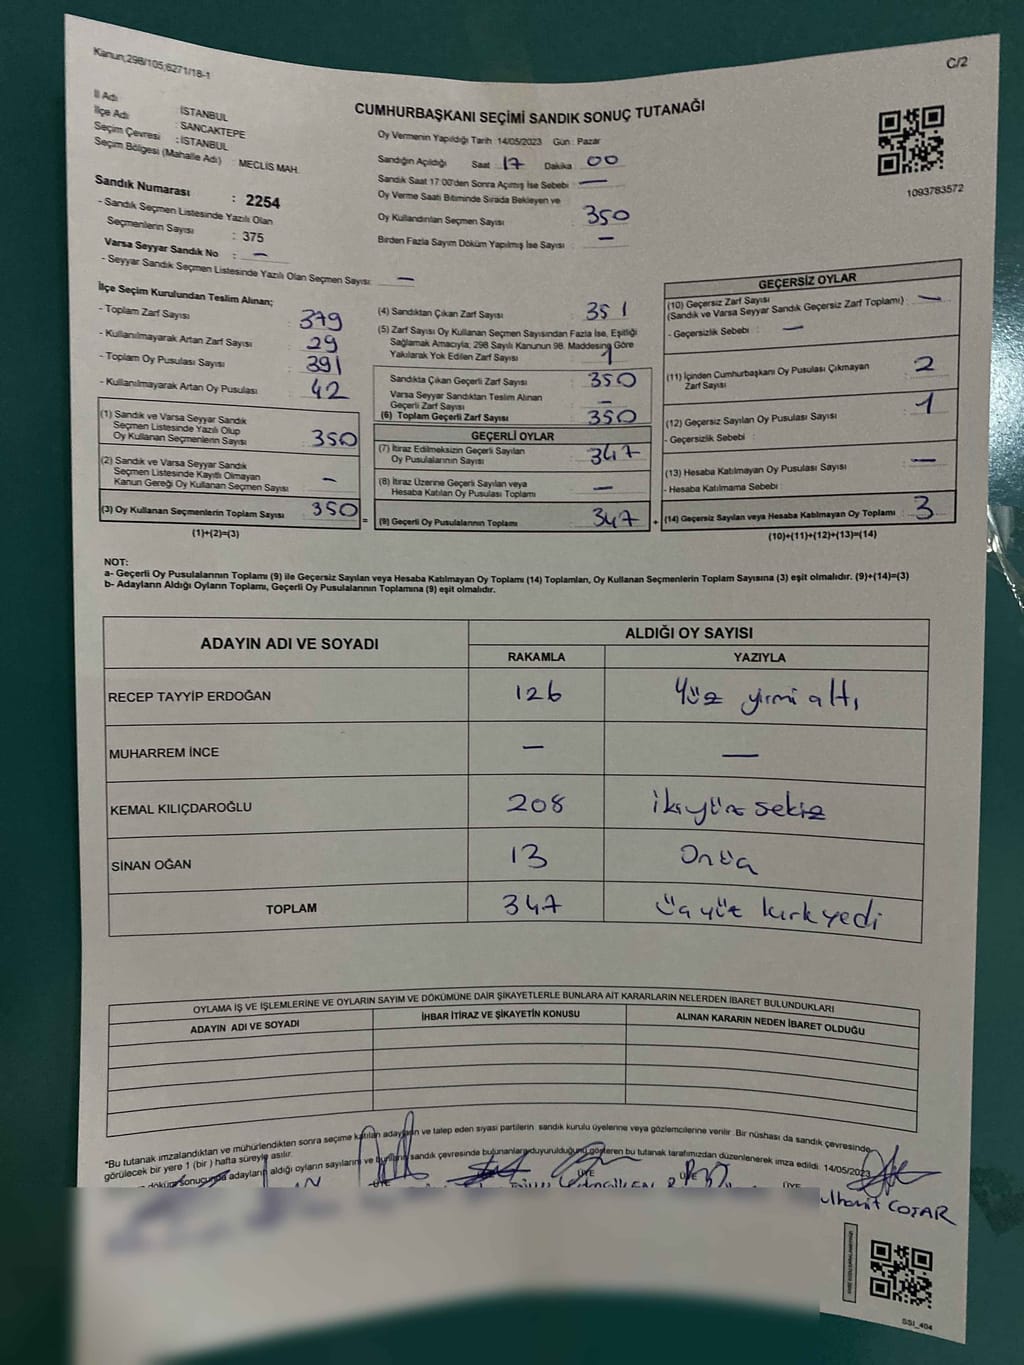 Kanun;298/105;6271/18-1
C/2
İl Adı : İSTANBUL
İlçe Adı : SANCAKTEPE
Seçim Çevresi : İSTANBUL
Seçim Bölgesi (Mahalle Adı) : MECLİS MAH.
CUMHURBAŞKANI SEÇİMİ SANDIK SONUÇ TUTANAĞI
Oy Vermenin Yapıldığı Tarih :14/05/2023 Gün : Pazar
Sandığın Açıldığı Saat : 17 Dakika : 00
Sandık Saat 17:00'den Sonra Açılmış İse Sebebi : —
Oy Verme Saati Bitiminde Sırada Bekleyen ve
Oy Kullandırılan Seçmen Sayısı : 350
Birden Fazla Sayım Döküm Yapılmış İse Sayısı : —
1093783572
Sandık Numarası : 2254
- Sandık Seçmen Listesinde Yazılı Olan
Seçmenlerin Sayısı : 375
Varsa Seyyar Sandık No : —
- Seyyar Sandık Seçmen Listesinde Yazılı Olan Seçmen Sayısı: —
İlçe Seçim Kurulundan Teslim Alınan;
- Toplam Zarf Sayısı : 379
- Kullanılmayarak Artan Zarf Sayısı : 29
- Toplam Oy Pusulası Sayısı : 391
- Kullanılmayarak Artan Oy Pusulası : 42
(1) Sandık ve Varsa Seyyar Sandık
Seçmen Listesinde Yazılı Olup
Oy Kullanan Seçmenlerin Sayısı : 350
(2) Sandık ve Varsa Seyyar Sandık
Seçmen Listesinde Kayıtlı Olmayan
Kanun Gereği Oy Kullanan Seçmen Sayısı : —
(3) Oy Kullanan Seçmenlerin Toplam Sayısı : 350 =
(1)+(2)=(3)
(4) Sandıktan Çıkan Zarf Sayısı : 351
(5) Zarf Sayısı Oy Kullanan Seçmen Sayısından Fazla İse, Eşitliği
Sağlamak Amacıyla; 298 Sayılı Kanunun 98. Maddesine Göre
Yakılarak Yok Edilen Zarf Sayısı : 1
Sandıkta Çıkan Geçerli Zarf Sayısı : 350
Varsa Seyyar Sandıktan Teslim Alınan
Geçerli Zarf Sayısı : —
(6) Toplam Geçerli Zarf Sayısı : 350
GEÇERLİ OYLAR
(7) İtiraz Edilmeksizin Geçerli Sayılan
Oy Pusulalarının Sayısı : 347
(8) İtiraz Üzerine Geçerli Sayılan veya
Hesaba Katılan Oy Pusulası Toplamı : —
(9) Geçerli Oy Pusulalarının Toplamı : 347 +
GEÇERSİZ OYLAR
(10) Geçersiz Zarf Sayısı
(Sandık ve Varsa Seyyar Sandık Geçersiz Zarf Toplamı) : —
- Geçersizlik Sebebi : —
(11) İçinden Cumhurbaşkanı Oy Pusulası Çıkmayan
Zarf Sayısı : 2
(12) Geçersiz Sayılan Oy Pusulası Sayısı : 1
- Geçersizlik Sebebi :
(13) Hesaba Katılmayan Oy Pusulası Sayısı : —
- Hesaba Katılmama Sebebi :
(14) Geçersiz Sayılan veya Hesaba Katılmayan Oy Toplamı : 3
(10)+(11)+(12)+(13)=(14)
NOT:
a- Geçerli Oy Pusulalarının Toplamı (9) ile Geçersiz Sayılan veya Hesaba Katılmayan Oy Toplamı (14) Toplamları, Oy Kullanan Seçmenlerin Toplam Sayısına (3) eşit olmalıdır. (9)+(14)=(3)
b- Adayların Aldığı Oyların Toplamı, Geçerli Oy Pusulalarının Toplamına (9) eşit olmalıdır.
ADAYIN ADI VE SOYADI ALDIĞI OY SAYISI
RAKAMLA YAZIYLA
RECEP TAYYİP ERDOĞAN 126 Yüz yirmi altı
MUHARREM İNCE — —
KEMAL KILIÇDAROĞLU 208 İkiyüz sekiz
SİNAN OĞAN 13 Onüç
TOPLAM 347 üçyüz kırkyedi
OYLAMA İŞ VE İŞLEMLERİNE VE OYLARIN SAYIM VE DÖKÜMÜNE DAİR ŞİKAYETLERLE BUNLARA AİT KARARLARIN NELERDEN İBARET BULUNDUKLARI
ADAYIN ADI VE SOYADI İHBAR İTİRAZ VE ŞİKAYETİN KONUSU ALINAN KARARIN NEDEN İBARET OLDUĞU
*Bu tutanak imzalandıktan ve mühürlendikten sonra seçime katılan adayların ve talep eden siyasi partilerin sandık kurulu üyelerine veya gözlemcilerine verilir. Bir nüshası da sandık çevresinde
görülecek bir yere 1 (bir) hafta süreyle asılır.
döküm sonucunda adayların aldığı oyların sayılarını ve bunların sandık çevresinde bulunanlara duyurulduğunu gösteren bu tutanak tarafımızdan düzenlenerek imza edildi. 14/05/2023
ÜYE ÜYE ÜYE ÜYE
COŞAR
SSİ_404